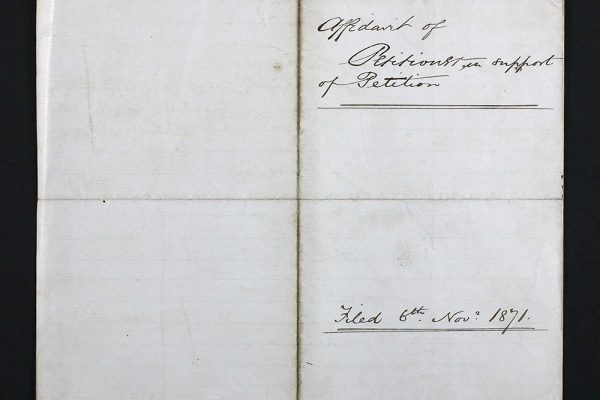 Affidavit of
Petitioner in support
of Petition
Filed 6th Novr 1871.